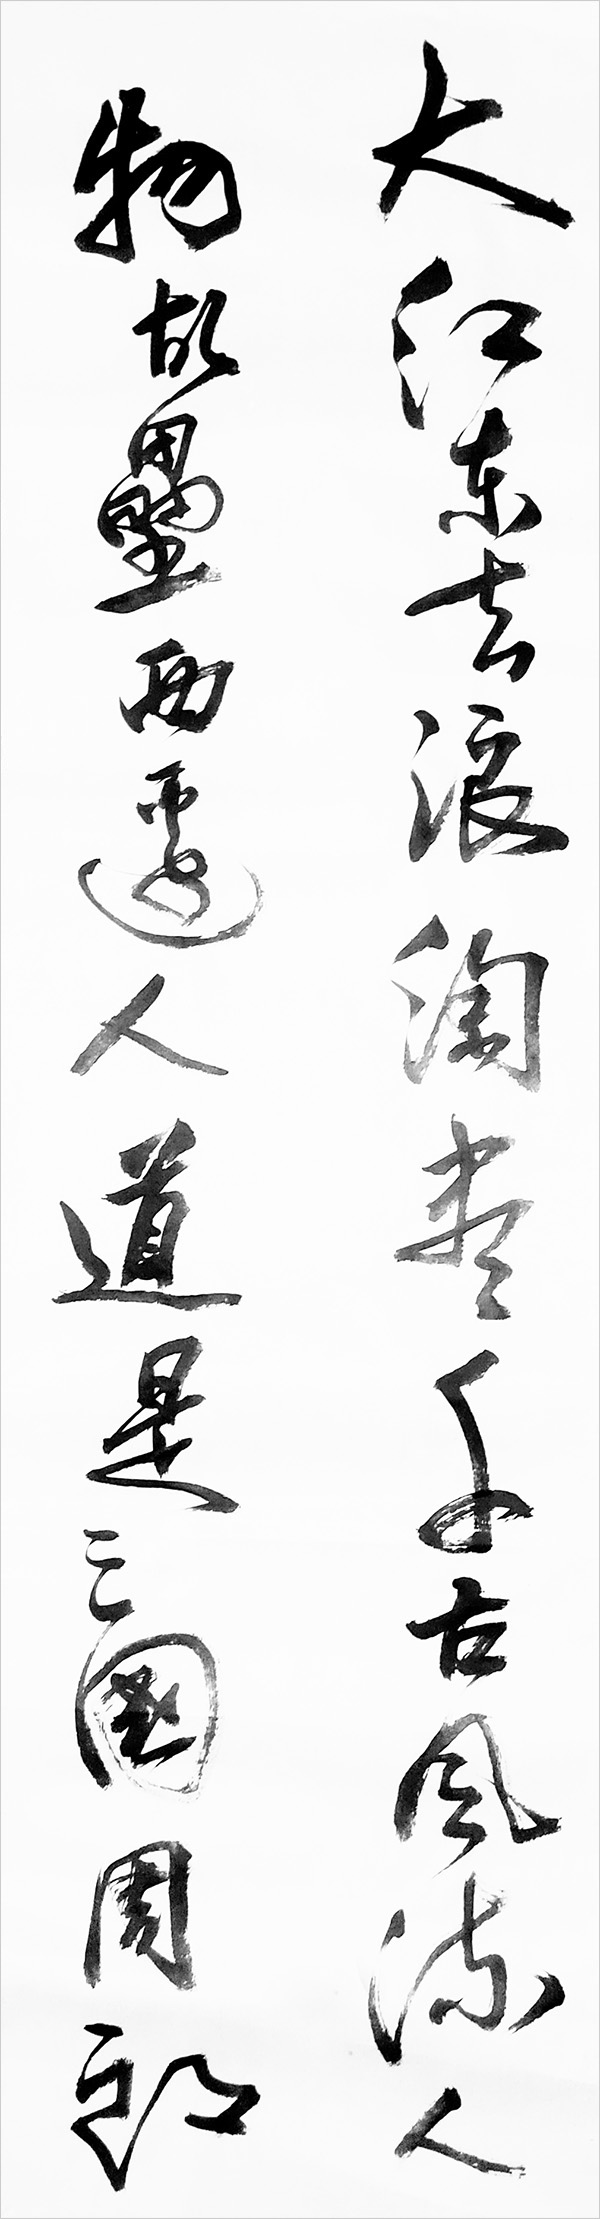 大江东去浪淘尽千古风流人
物故壘西邊人道是三國周郎